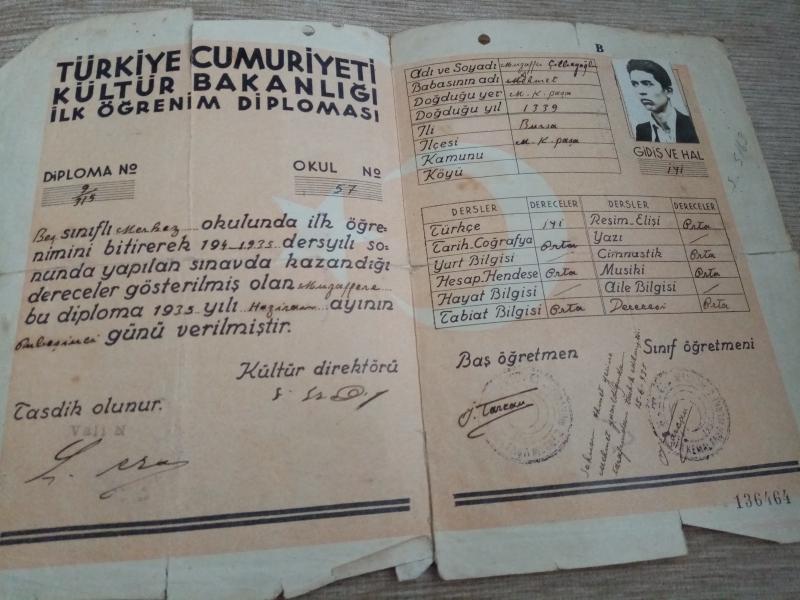 TÜRKİYE CUMURİYETİ
KÜLTÜR BAKANLIĞI
İLK ÖĞRENİM DİPLOMASI
DİPLOMA No
9/315
OKUL No
57
Beş sınıflı Merkez okulunda ilk öğre-
nimini bitirerek 1934-1935 dersyılı so-
nunda yapılan sınavda kazandığı
dereceler gösterilmiş olan Muzaffere
bu diploma 1935 yılı Haziran ayının
Onbeşinci günü verilmiştir.
Kültür direktörü
Tasdik olunur.
Vali
B
Adı ve Soyadı Muzaffer
Babasının adı Mehmet
Doğduğu yer M. K. paşa
Doğduğu yıl 1339
İli Bursa
İlçesi M. K. paşa
Kamunu
Köyü
GİDİŞ VE HAL
iyi
DERSLER DERECELER DERSLER DERECELER
Türkçe iyi Resim.Elişi Orta
Tarih.Coğrafya Orta Yazı
Yurt Bilgisi Cimnastik Orta
Hesap.Hendese Orta Musiki Orta
Hayat Bilgisi Aile Bilgisi
Tabiat Bilgisi Orta Derecesi Orta
Baş öğretmen
Sınıf öğretmeni
136464